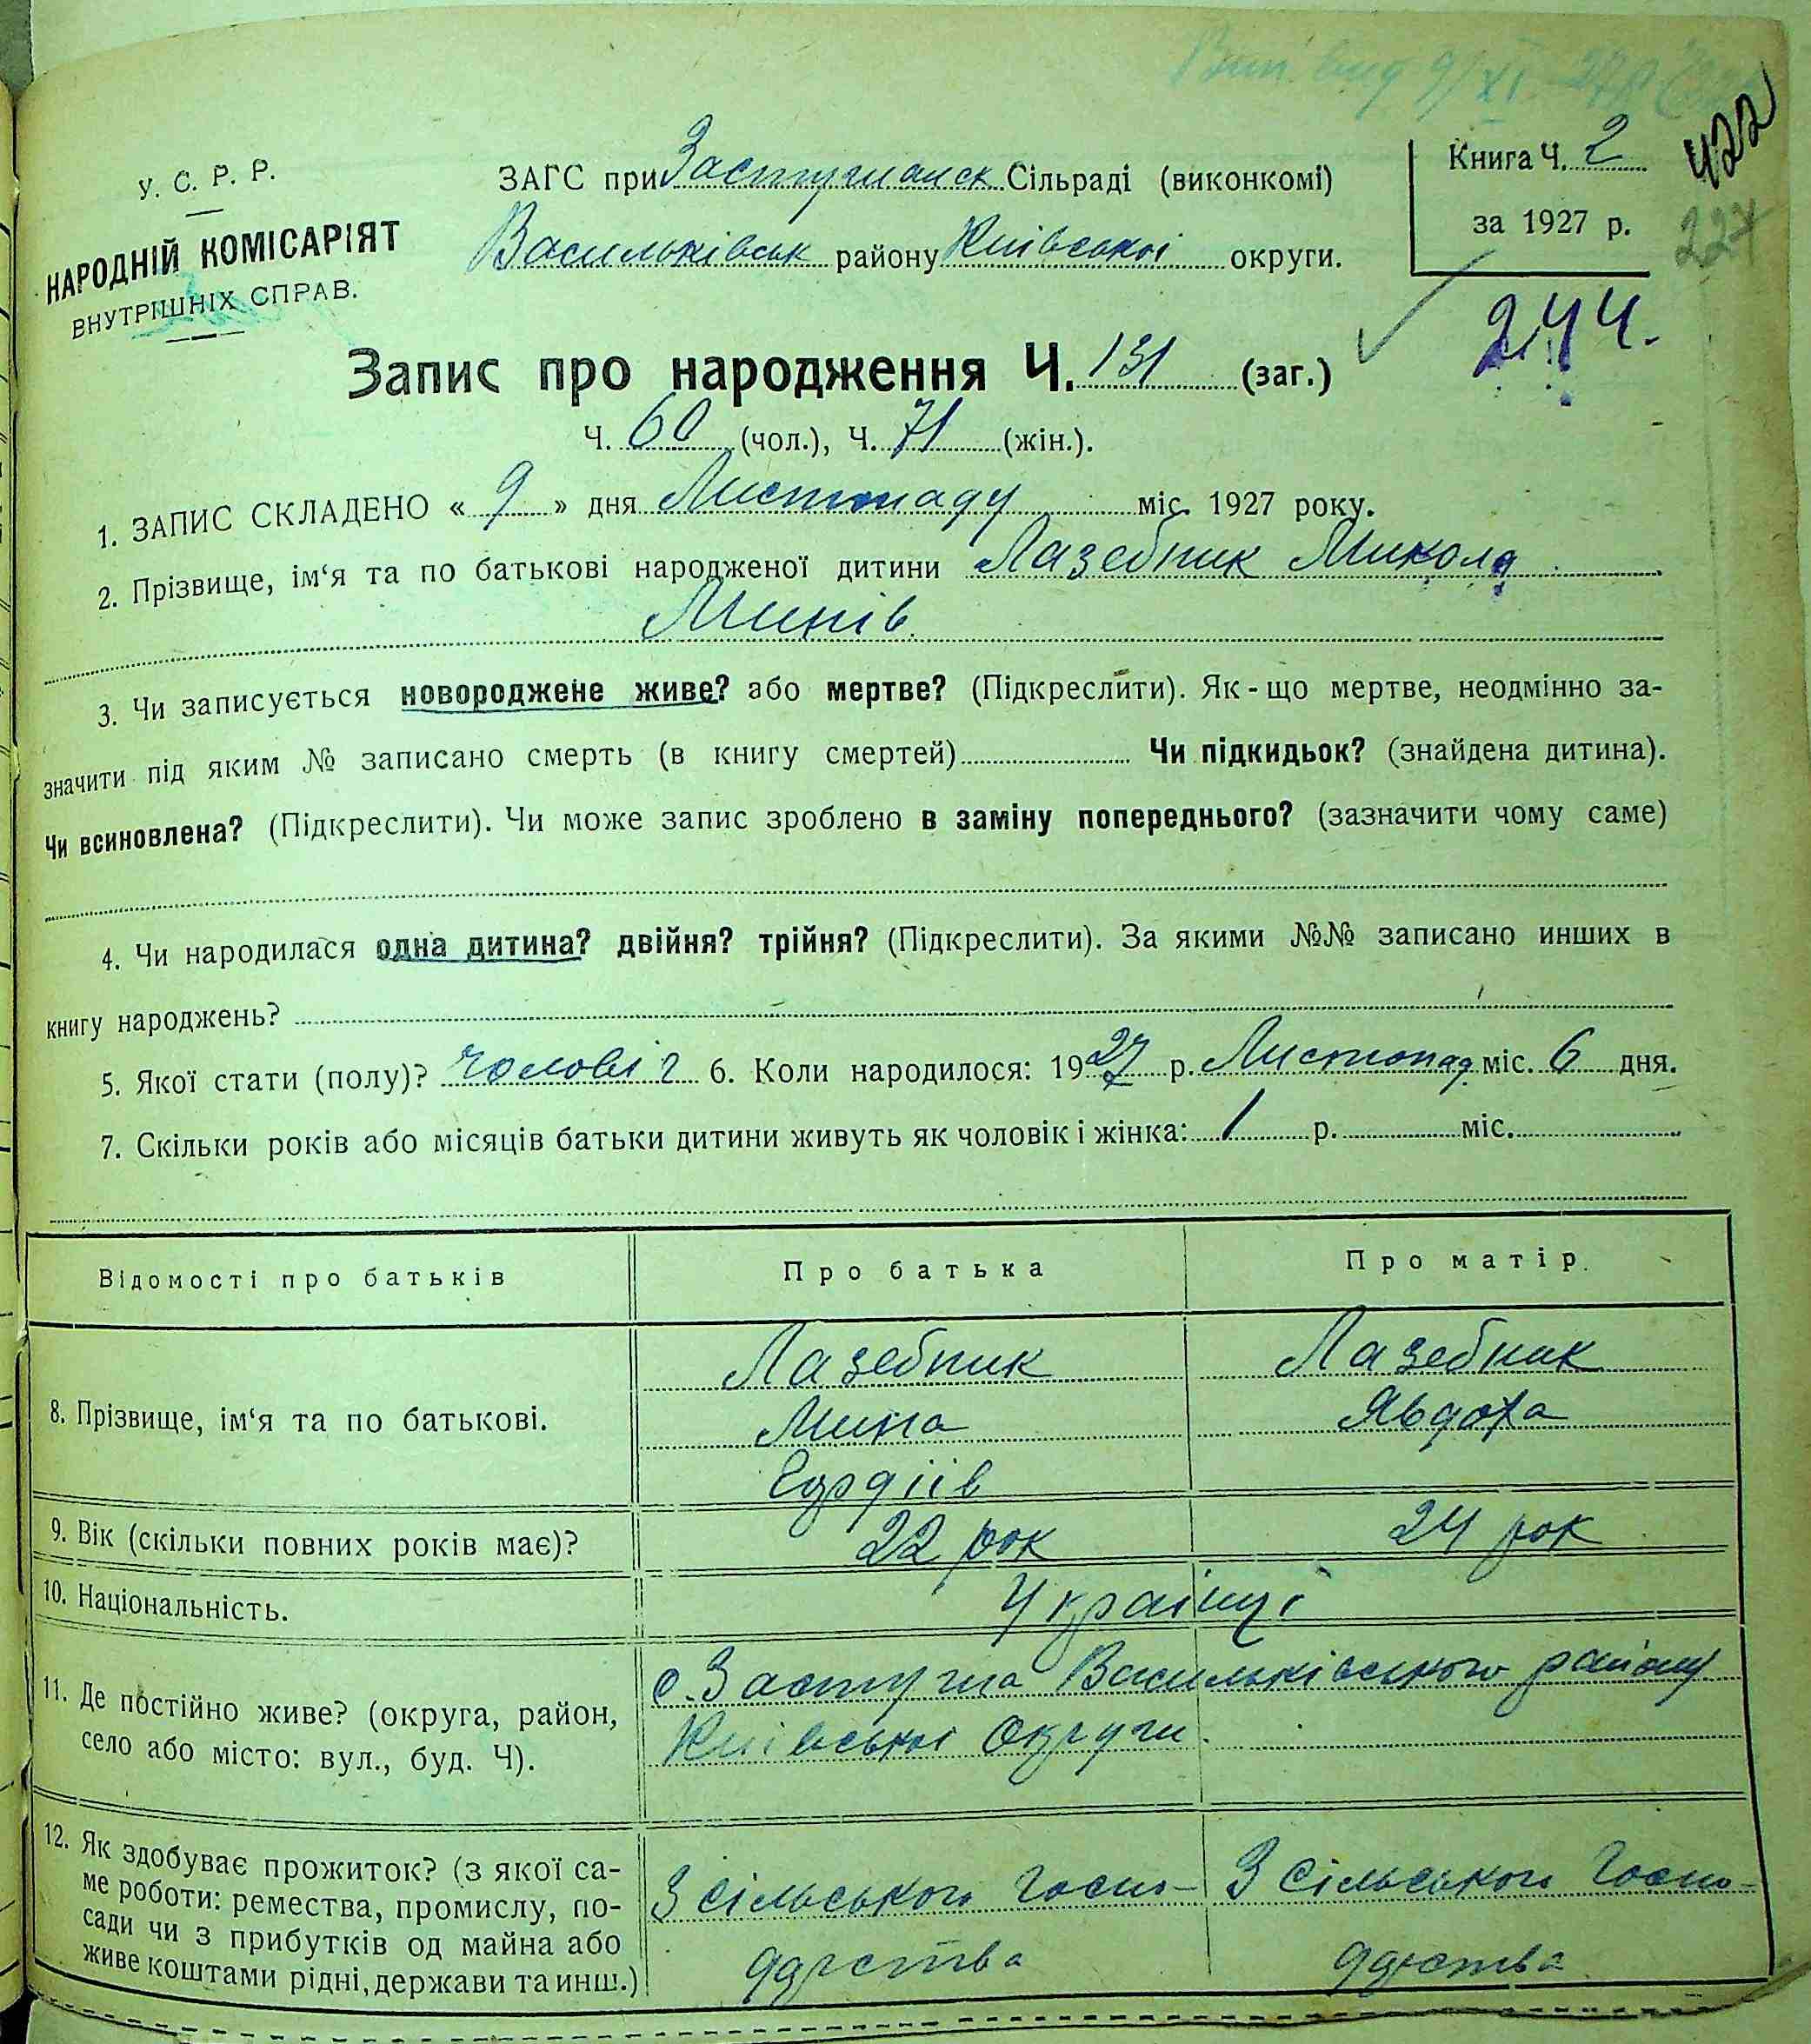 Вип. вид 9/XI
422
227
У. С. Р. Р.
НАРОДНІЙ КОМІСАРІЯТ
ВНУТРІШНІХ СПРАВ.
ЗАГС при Застугнанск Сільраді (виконкомі)
Васильківськ району Київської округи.
Книга Ч. 2
за 1927 р.
244.
Запис про народження Ч. 131 (заг.)
Ч. 60 (чол.), Ч. 71 (жін.).
1. ЗАПИС СКЛАДЕНО « 9 » дня Листопаду міс. 1927 року.
2. Прізвище, ім‘я та по батькові народженої дитини Лазебник Микола
Минів.
3. Чи записується новороджене живе? або мертве? (Підкреслити). Як-що мертве, неодмінно за-
значити під яким № записано смерть (в книгу смертей) Чи підкидьок? (знайдена дитина).
Чи всиновлена? (Підкреслити). Чи може запис зроблено в заміну попереднього? (зазначити чому саме)
4. Чи народилася одна дитина? двійня? трійня? (Підкреслити). За якими №№ записано инших в
книгу народжень?
5. Якої стати (полу)? чоловіч 6. Коли народилося: 1927 р. Листопад міс. 6 дня.
7. Скільки років або місяців батьки дитини живуть як чоловік і жінка: 1 р. міс.
Відомості про батьків Про батька Про матір.
8. Прізвище, ім‘я та по батькові.
Лазебник Лазебник
Мина Явдоха
Гордіів
9. Вік (скільки повних років має)? 22 рок 24 рок
10. Національність. Українці
11. Де постійно живе? (округа, район,
село або місто: вул., буд. Ч).
с. Застугна Васильківського району
Київської Округи.
12. Як здобуває прожиток? (з якої са-
ме роботи: ремества, промислу, по-
сади чи з прибутків од майна або
живе коштами рідні, держави та инш.)
З сільського госпо- З сільського госпо-
дарства дарства